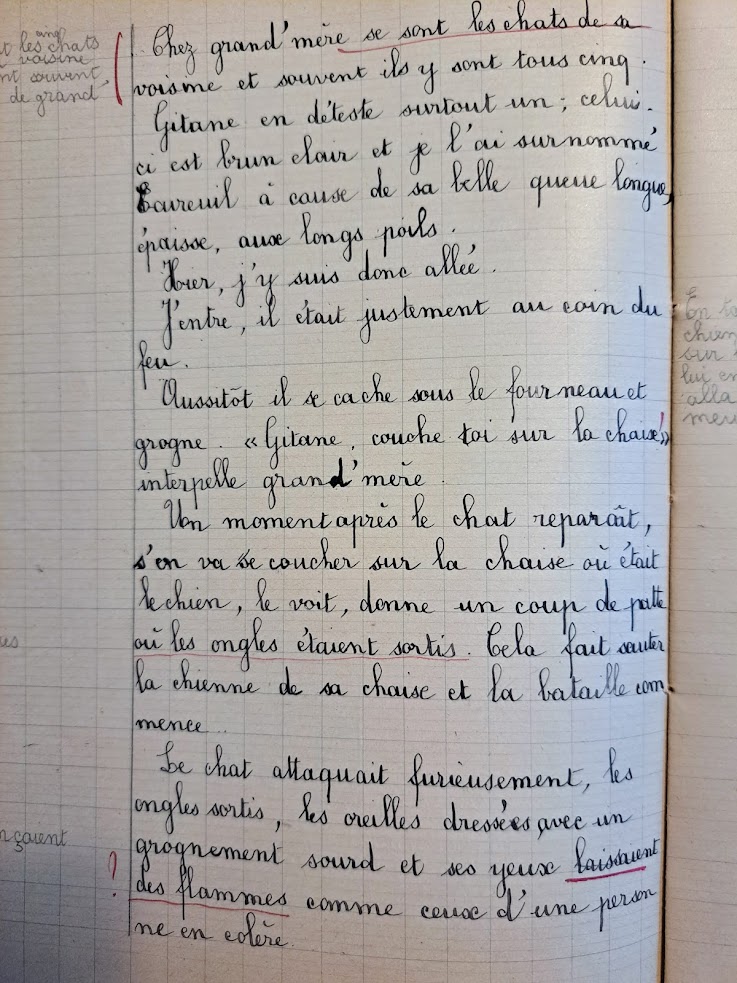 cinq
t les chats
voisine
nt souvent
de grand'
Chez grand'mère se sont les chats de sa
voisine et souvent ils y sont tous cinq.
Gitane en déteste surtout un ; celui-
ci est brun clair et je l'ai surnommé
Ecureuil à cause de sa belle queue longue,
épaisse, aux longs poils.
Hier, j'y suis donc allée.
J'entre, il était justement au coin du
feu.
Aussitôt il se cache sous le fourneau et
grogne. « Gitane, couche toi sur la chaise! »
interpelle grand'mère.
Un moment après le chat reparaît,
s'en va se coucher sur la chaise où était
le chien, le voit, donne un coup de patte
où les ongles étaient sortis. Cela fait sauter
la chienne de sa chaise et la bataille com
mence.
Le chat attaquait furieusement, les
ongles sortis, les oreilles dressées, avec un
grognement sourd et ses yeux laissaient
des flammes comme ceux d'une person
ne en colère.
?
nçaient
En
chien
sur
lui en
alla